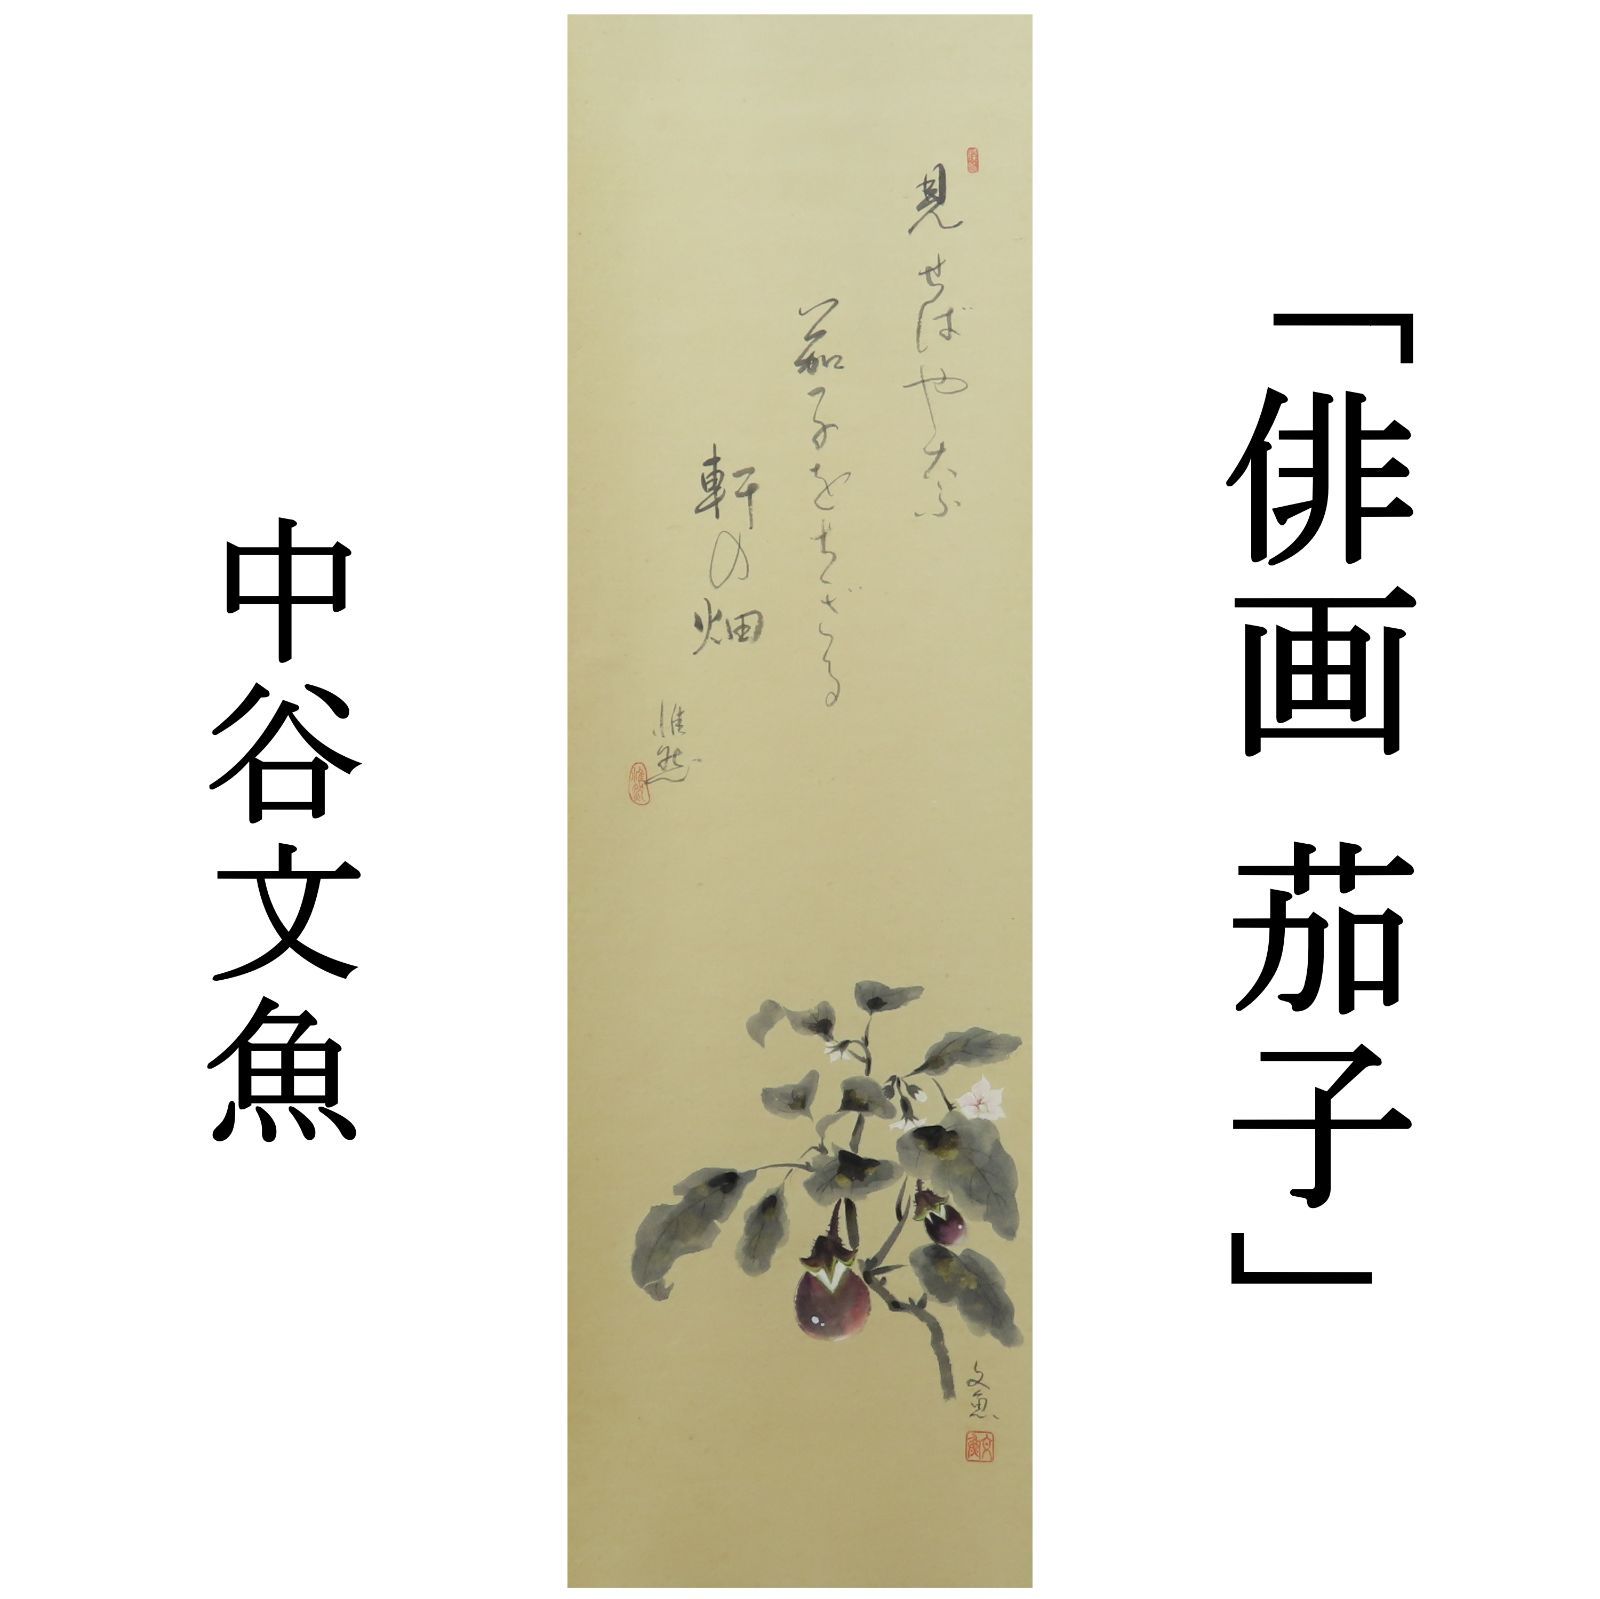 「俳画 茄子」
見せばや奈
茄子をちぎる
軒の畑
惟然
文魚
中谷文魚